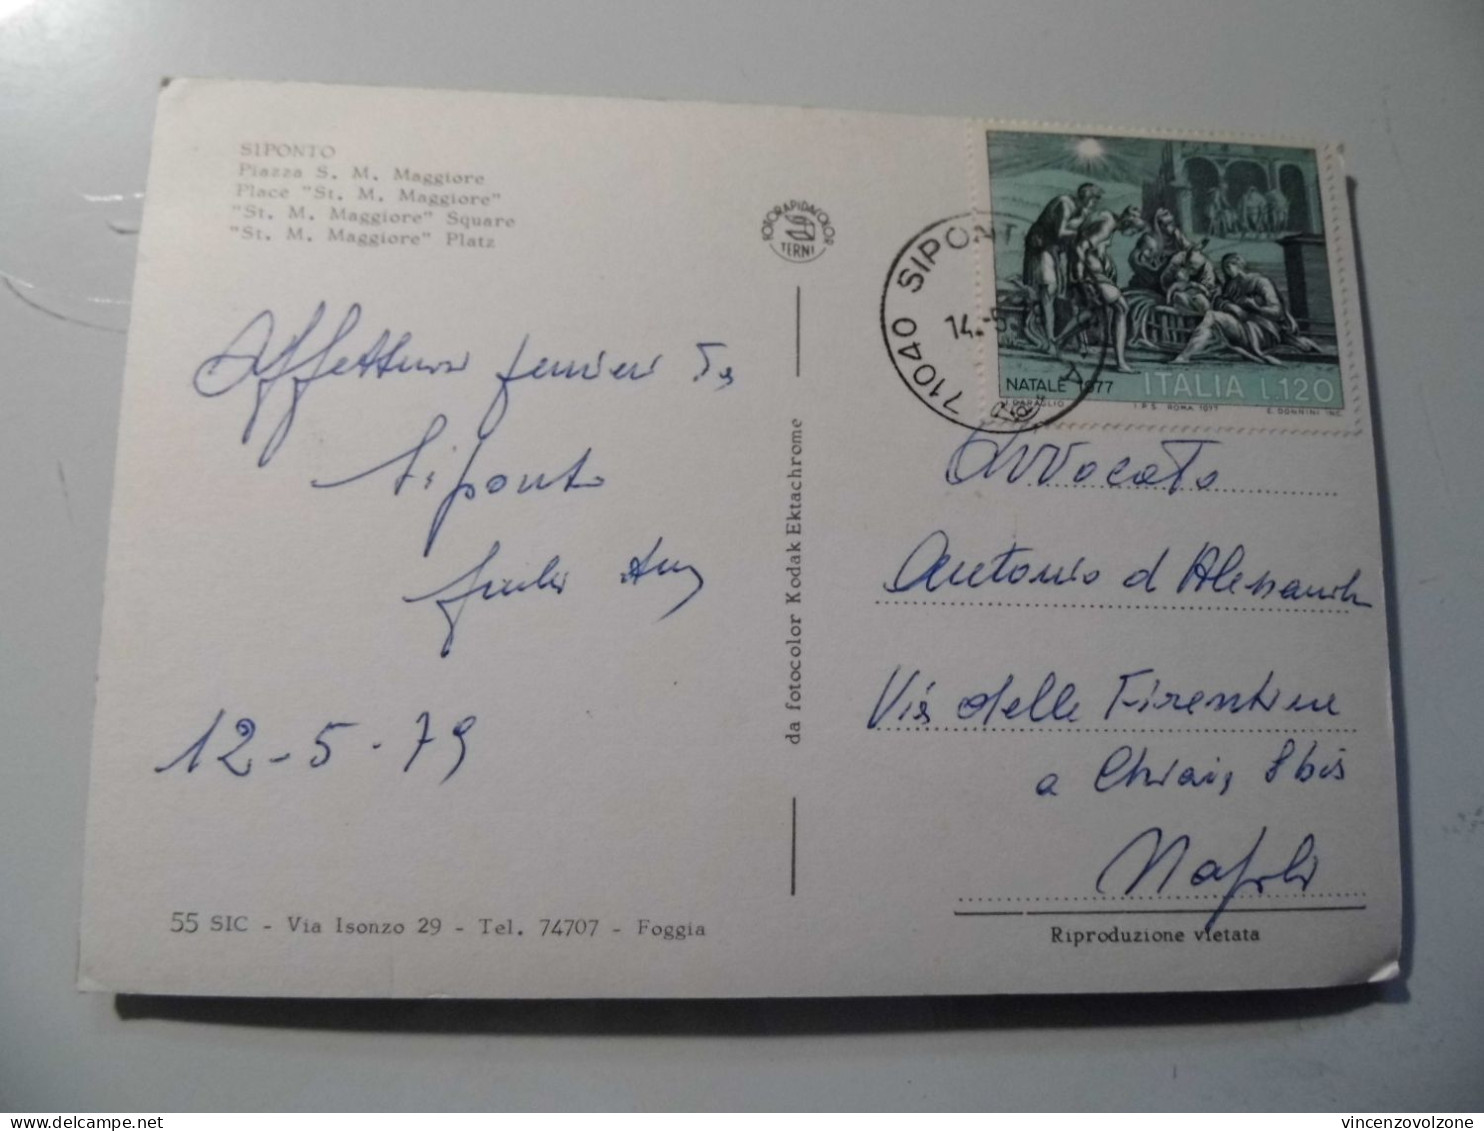 SIPONTO
Piazza S. M. Maggiore
Place "St. M. Maggiore"
"St. M. Maggiore" Square
"St. M. Maggiore" Platz
FOTORAPIDACOLOR
TERNI
71040 SIPONT
14.-5
NATALE 1977 ITALIA L.120
J. CARAGLIO I.P.S. ROMA 1977 E. DONNINI INC.
Siponto
12-5-79
da fotocolor Kodak Ektachrome
Avvocato
Antonio d'Alessandro
Via delle Fiorentine
a Chiaia, 8 bis
Napoli
55 SIC - Via Isonzo 29 - Tel. 74707 - Foggia
Riproduzione vietata
vincenzovolzone